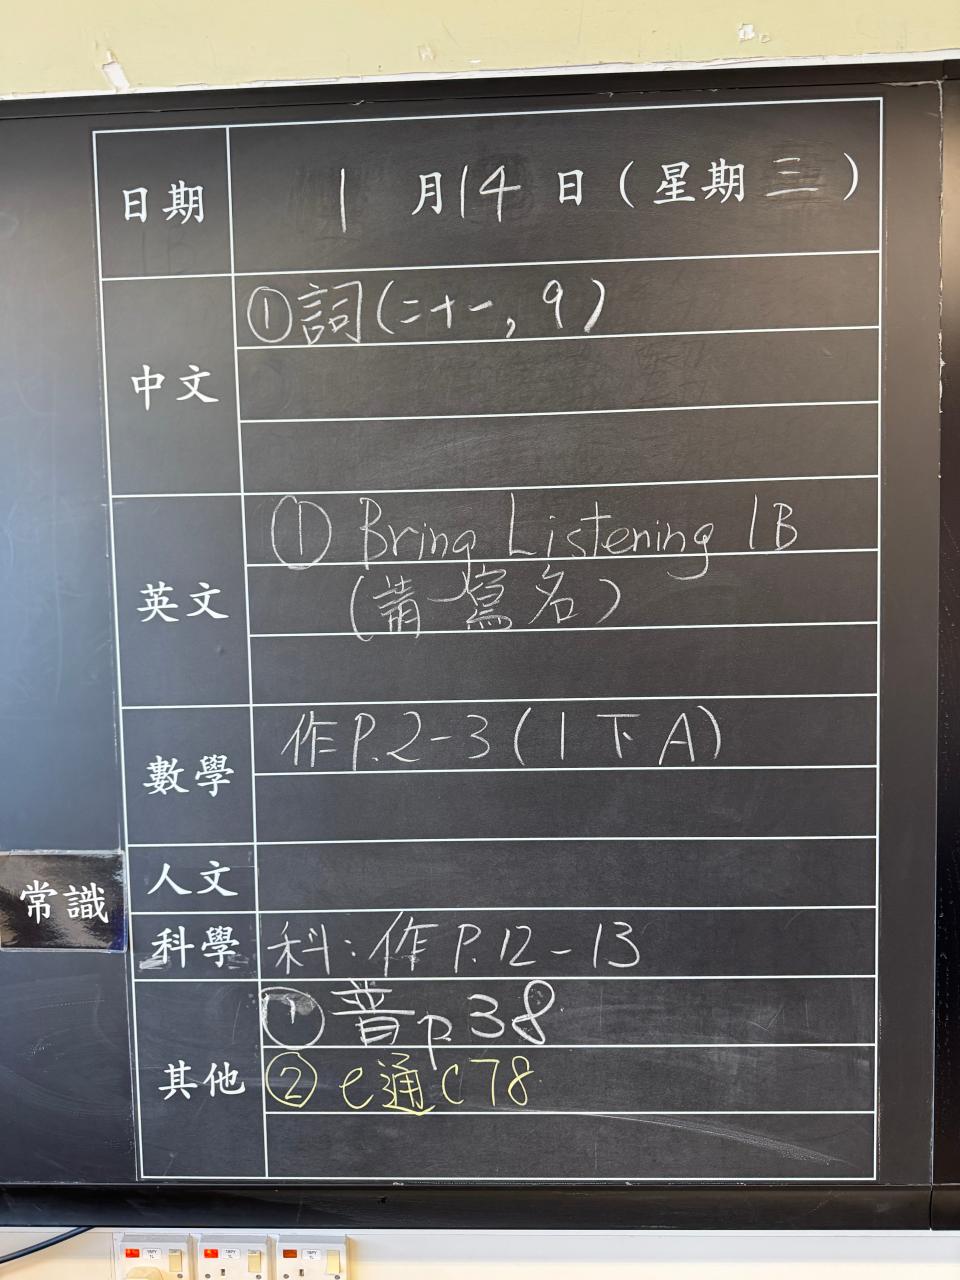 日期 1 月 14 日 ( 星期 三 )
中文 ① 詞 (二十一, 9)
英文 ① Bring Listening 1B
(請寫名)
數學 作 P.2-3 (1 下 A)
人文
常識
科學 科: 作 P.12-13
其他 ① 普 p.38
② e通 C78